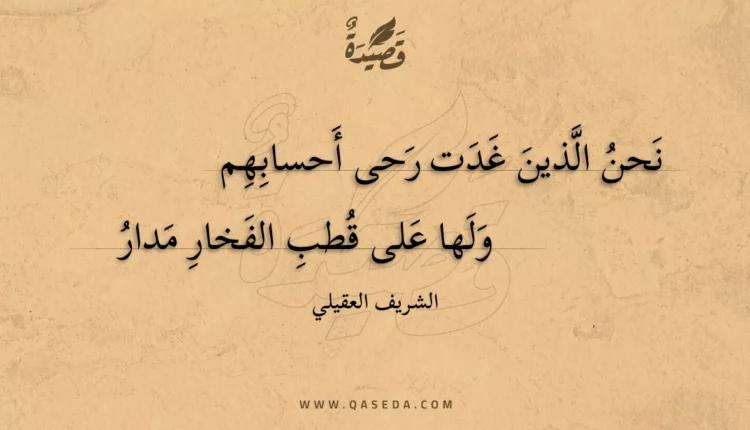 قَصِيْدَةٌ
نَحنُ الَّذينَ غَدَت رَحى أَحسابِهِم
وَلَها عَلى قُطبِ الفَخارِ مَدارُ
الشريف العقيلي
WWW.QASEDA.COM